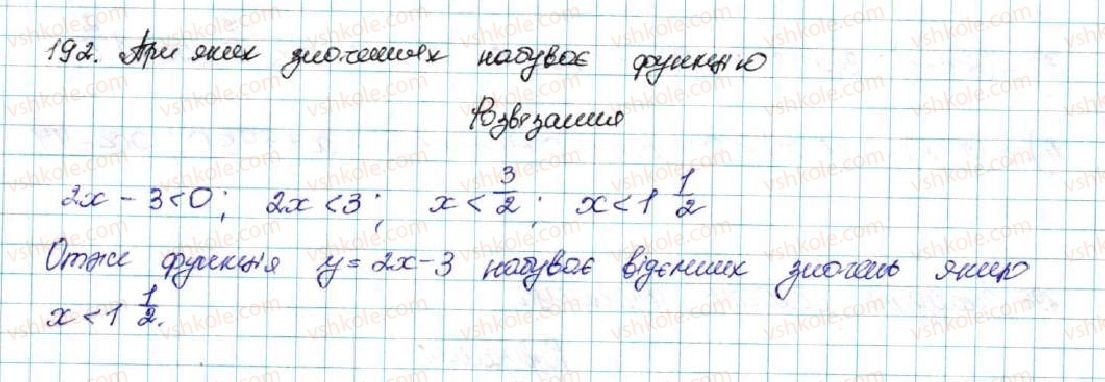 192. При яких значеннях набуває функцію
Розвязання
2x - 3 < 0; 2x < 3; x < 3/2; x < 1 1/2
Отже функція y = 2x - 3 набуває відємних значень якщо
x < 1 1/2.